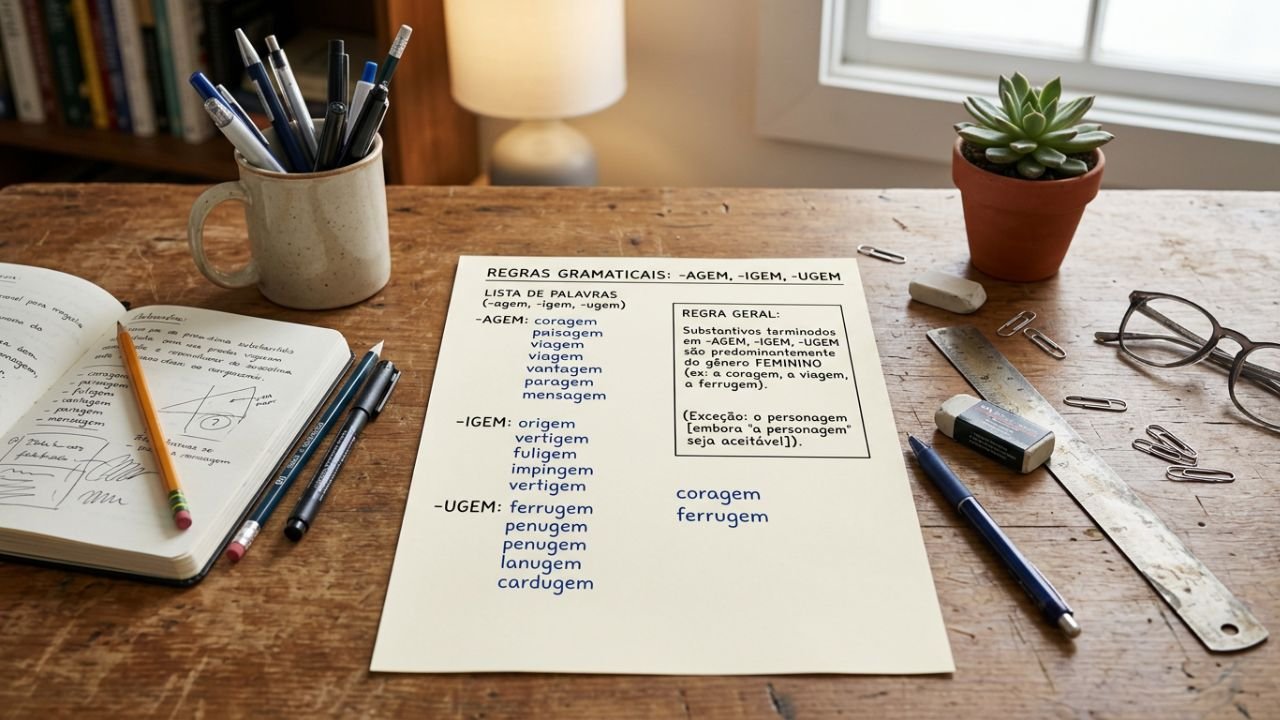 REGRAS GRAMATICAIS: -AGEM, -IGEM, -UGEM
LISTA DE PALAVRAS
(-agem, -igem, -ugem)
-AGEM: coragem
paisagem
viagem
viagem
vantagem
paragem
mensagem
-IGEM: origem
vertigem
fuligem
impingem
vertigem
-UGEM: ferrugem
penugem
penugem
lanugem
cardugem
REGRA GERAL:
Substantivos terminados
em -AGEM, -IGEM, -UGEM
são predominantemente
do gênero FEMININO
(ex: a coragem, a viagem,
a ferrugem).
(Exceção: o personagem
[embora "a personagem"
seja aceitável]).
coragem
ferrugem